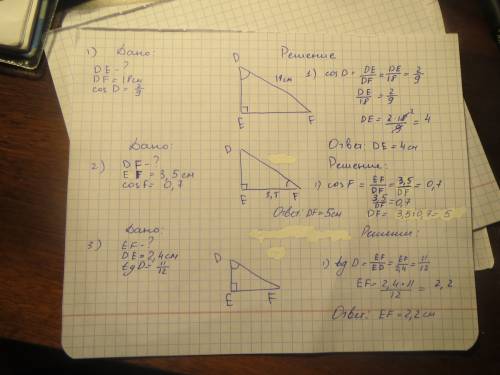 1) Дано:
DE - ?
DF = 18см
cos D = 2/9
D
18см
E F
Решение
1) cos D = DE/DF = DE/18 = 2/9
DE/18 = 2/9
DE = 2·18²/9 = 4
Ответ: DE = 4см
2) Дано:
DF - ?
EF = 3,5 см
cos F = 0,7
D
E 3,5 F
Решение:
1) cos F = EF/DF = 3,5/DF = 0,7
3,5/DF = 0,7
DF = 3,5:0,7 = 5
Ответ: DF = 5см
3) Дано:
EF - ?
DE = 2,4см
tg D = 11/12
D
E F
Решение:
1) tg D = EF/ED = EF/2,4 = 11/12
EF = 2,4*11/12 = 2,2
Ответ: EF = 2,2см